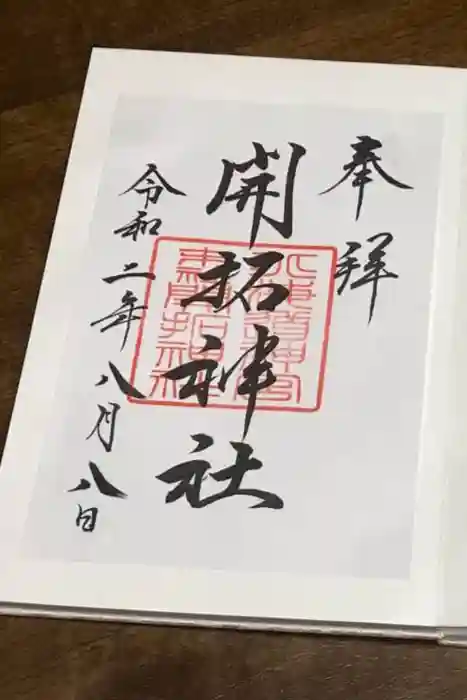 奉拝
開拓神社
北海道神宮
末社開拓神社
令和二年八月八日